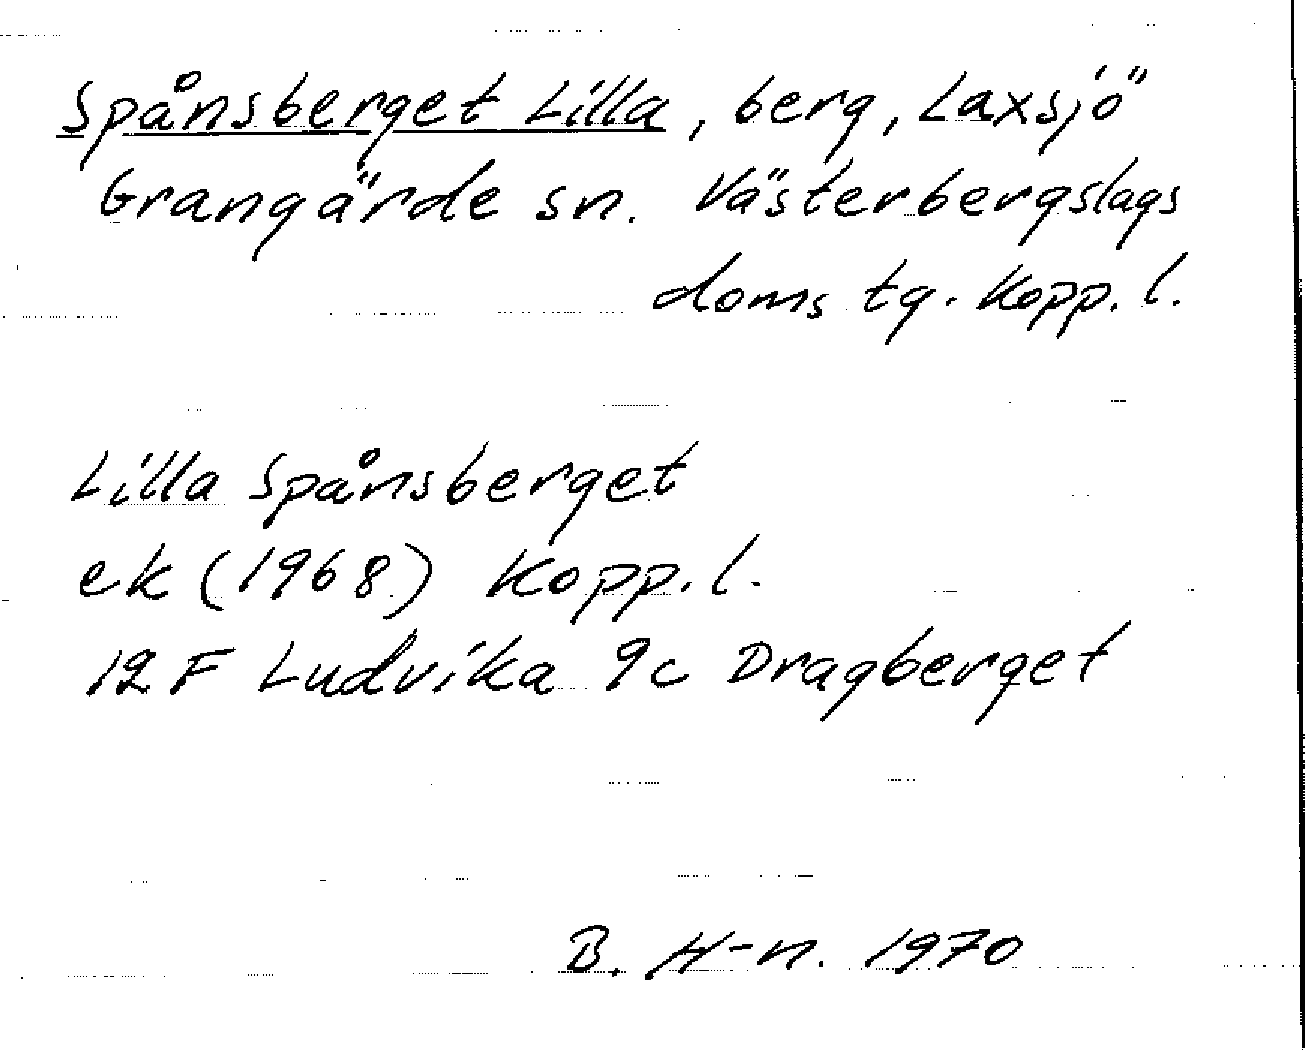 Spånsberget Lilla, berg, Laxsjö
Grangärde sn. Västerbergslags
doms tg. Kopp. l.
Lilla Spånsberget
ek (1968) Kopp. l.
12 F Ludvika 9c Dragberget
B. H-n. 1970